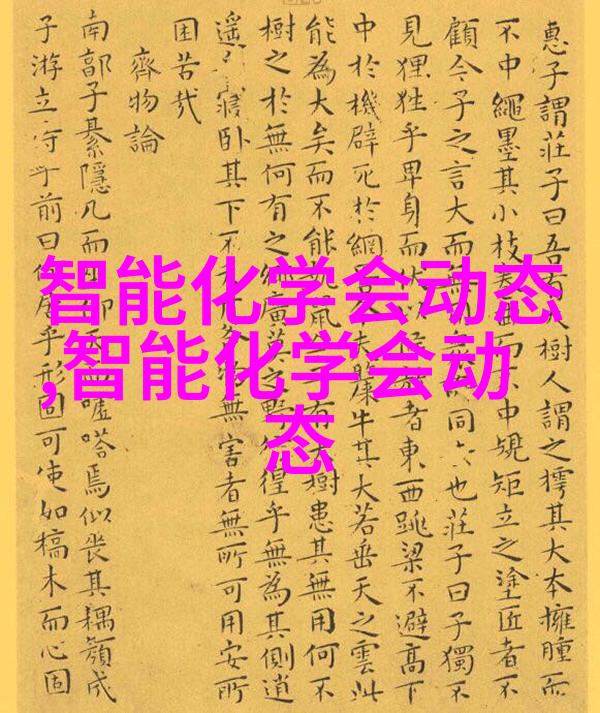 智能化学会动态
,智能化学会动
态
惠子謂莊子曰吾有大樹人謂之樗其大本擁腫而
不中繩墨其小枝卷曲而不中規矩立之塗匠者不
顧今子之言大而無同去也莊子曰子獨不
見狸狌乎卑身而伏以者東西跳梁不避高下
中於機辟死於網夫斄牛其大若垂天之雲此
能為大矣而不能執鼠子有大樹患其無用何不
樹之於無何有之鄉廣莫之野彷徨乎無為其側逍
遙寢臥其下不物無害者無所可用安所
困苦哉
齊物論
南郭子綦隱几而仰而噓嗒焉似喪其耦顏成
子游立侍乎前曰何居乎形固可使如槁木而心固